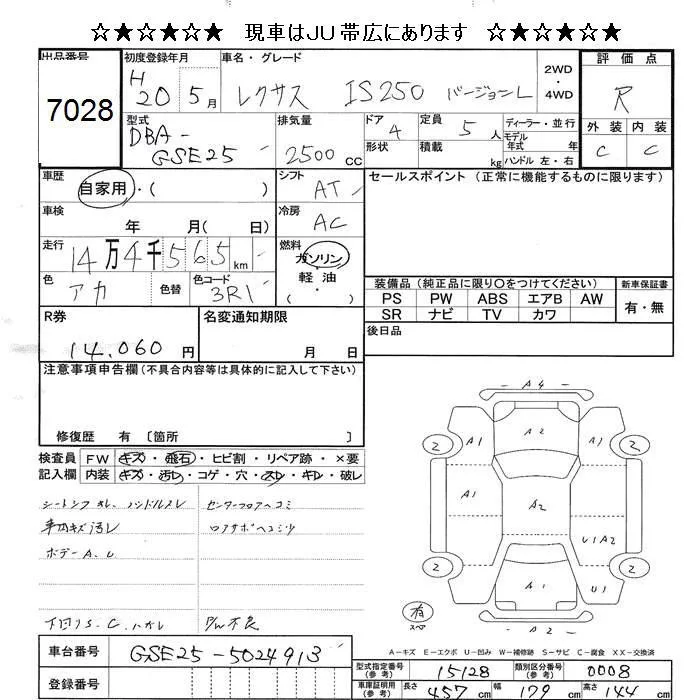 ☆★☆★☆★☆ 現車はJU帯広にあります ☆★☆★☆★☆
出品番号
7028
初度登録年月
H 20 5月
車名・グレード
レクサス IS250 バージョンL
2WD
・
4WD
評価点
R
外装 内装
C C
型式
DBA-
GSE25
排気量
2500 CC
ドア 4
形状
定員 5人
積載 kg
ディーラー・並行
モデル
年式 年
ハンドル 左・右
車歴
自家用・( )
シフト
AT
車検
年 月( 日)
冷房
AC
走行
14万4千565km
燃料
ガソリン
・
軽油
( )
色
アカ
色替
色コード
3R1
セールスポイント (正常に機能するものに限ります)
装備品(純正品に限り○をつけてください)
PS PW ABS エアB AW
SR ナビ TV カワ
新車保証書
有・無
R券
14,060円
名変通知期限
月 日
後日品
注意事項申告欄(不具合内容等は具体的に記入して下さい)
修復歴 有 〔箇所 〕
検査員 FW キズ・飛石・ヒビ割・リペア跡・×要
記入欄 内装 キズ・汚レ・コゲ・穴・スレ・キレ・破レ
ハンドルスレ
センターフロアヘコミ
車内キズ汚レ
ボデーA、U
下回りS、C、
P/W不良
A4
A1
A2
2
2
A1
A2
U1A2
2
2
A1
U1
A2
有
スペア
A-キズ E-エクボ U-凹み W-補修跡 S-サビ C-腐食 XX-交換済
車台番号
GSE25-5024913
登録番号
型式指定番号
(参考)
15128
類別区分番号
(参考)
0008
車庫証明用
(参考)
長さ 457cm 幅 179cm 高さ 144cm